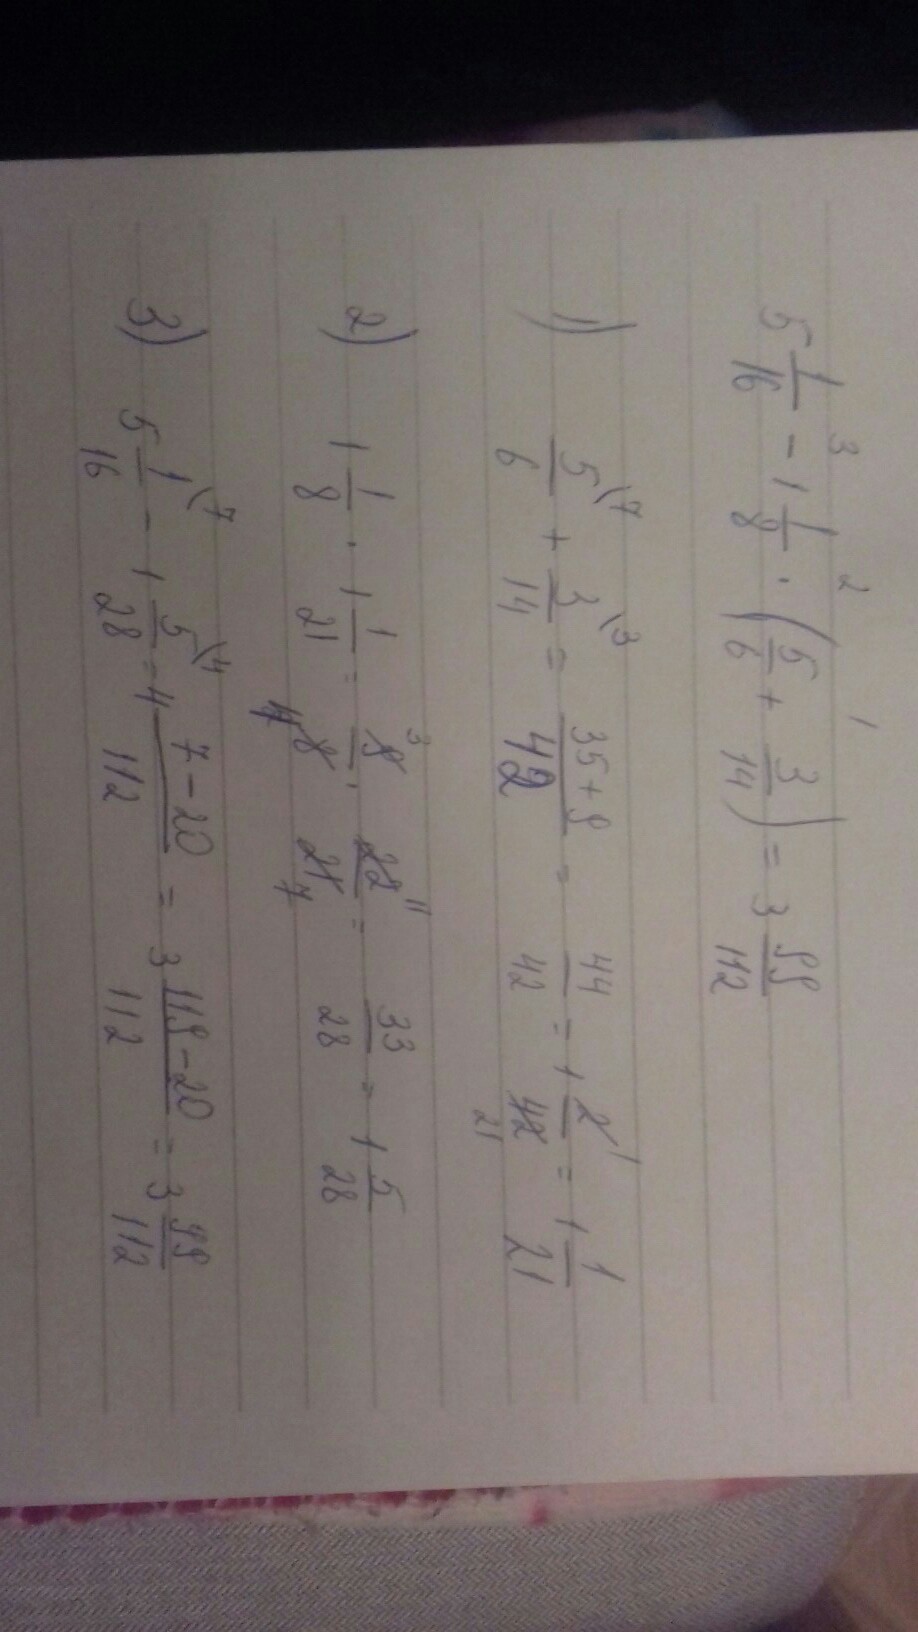 5 1/16 - 1 1/8 · (5/6 + 3/14) = 3 99/112
3 2 1
1) 5/6 \7 + 3/14 \3 = 35+9/42 = 44/42 = 1 2/42 = 1 1/21
1 21
2) 1 1/8 · 1 1/21 = 9/8 · 22/21 = 33/28 = 1 5/28
3 11 4 7
3) 5 1/16 \7 - 1 5/28 \4 = 4 7-20/112 = 3 119-20/112 = 3 99/112